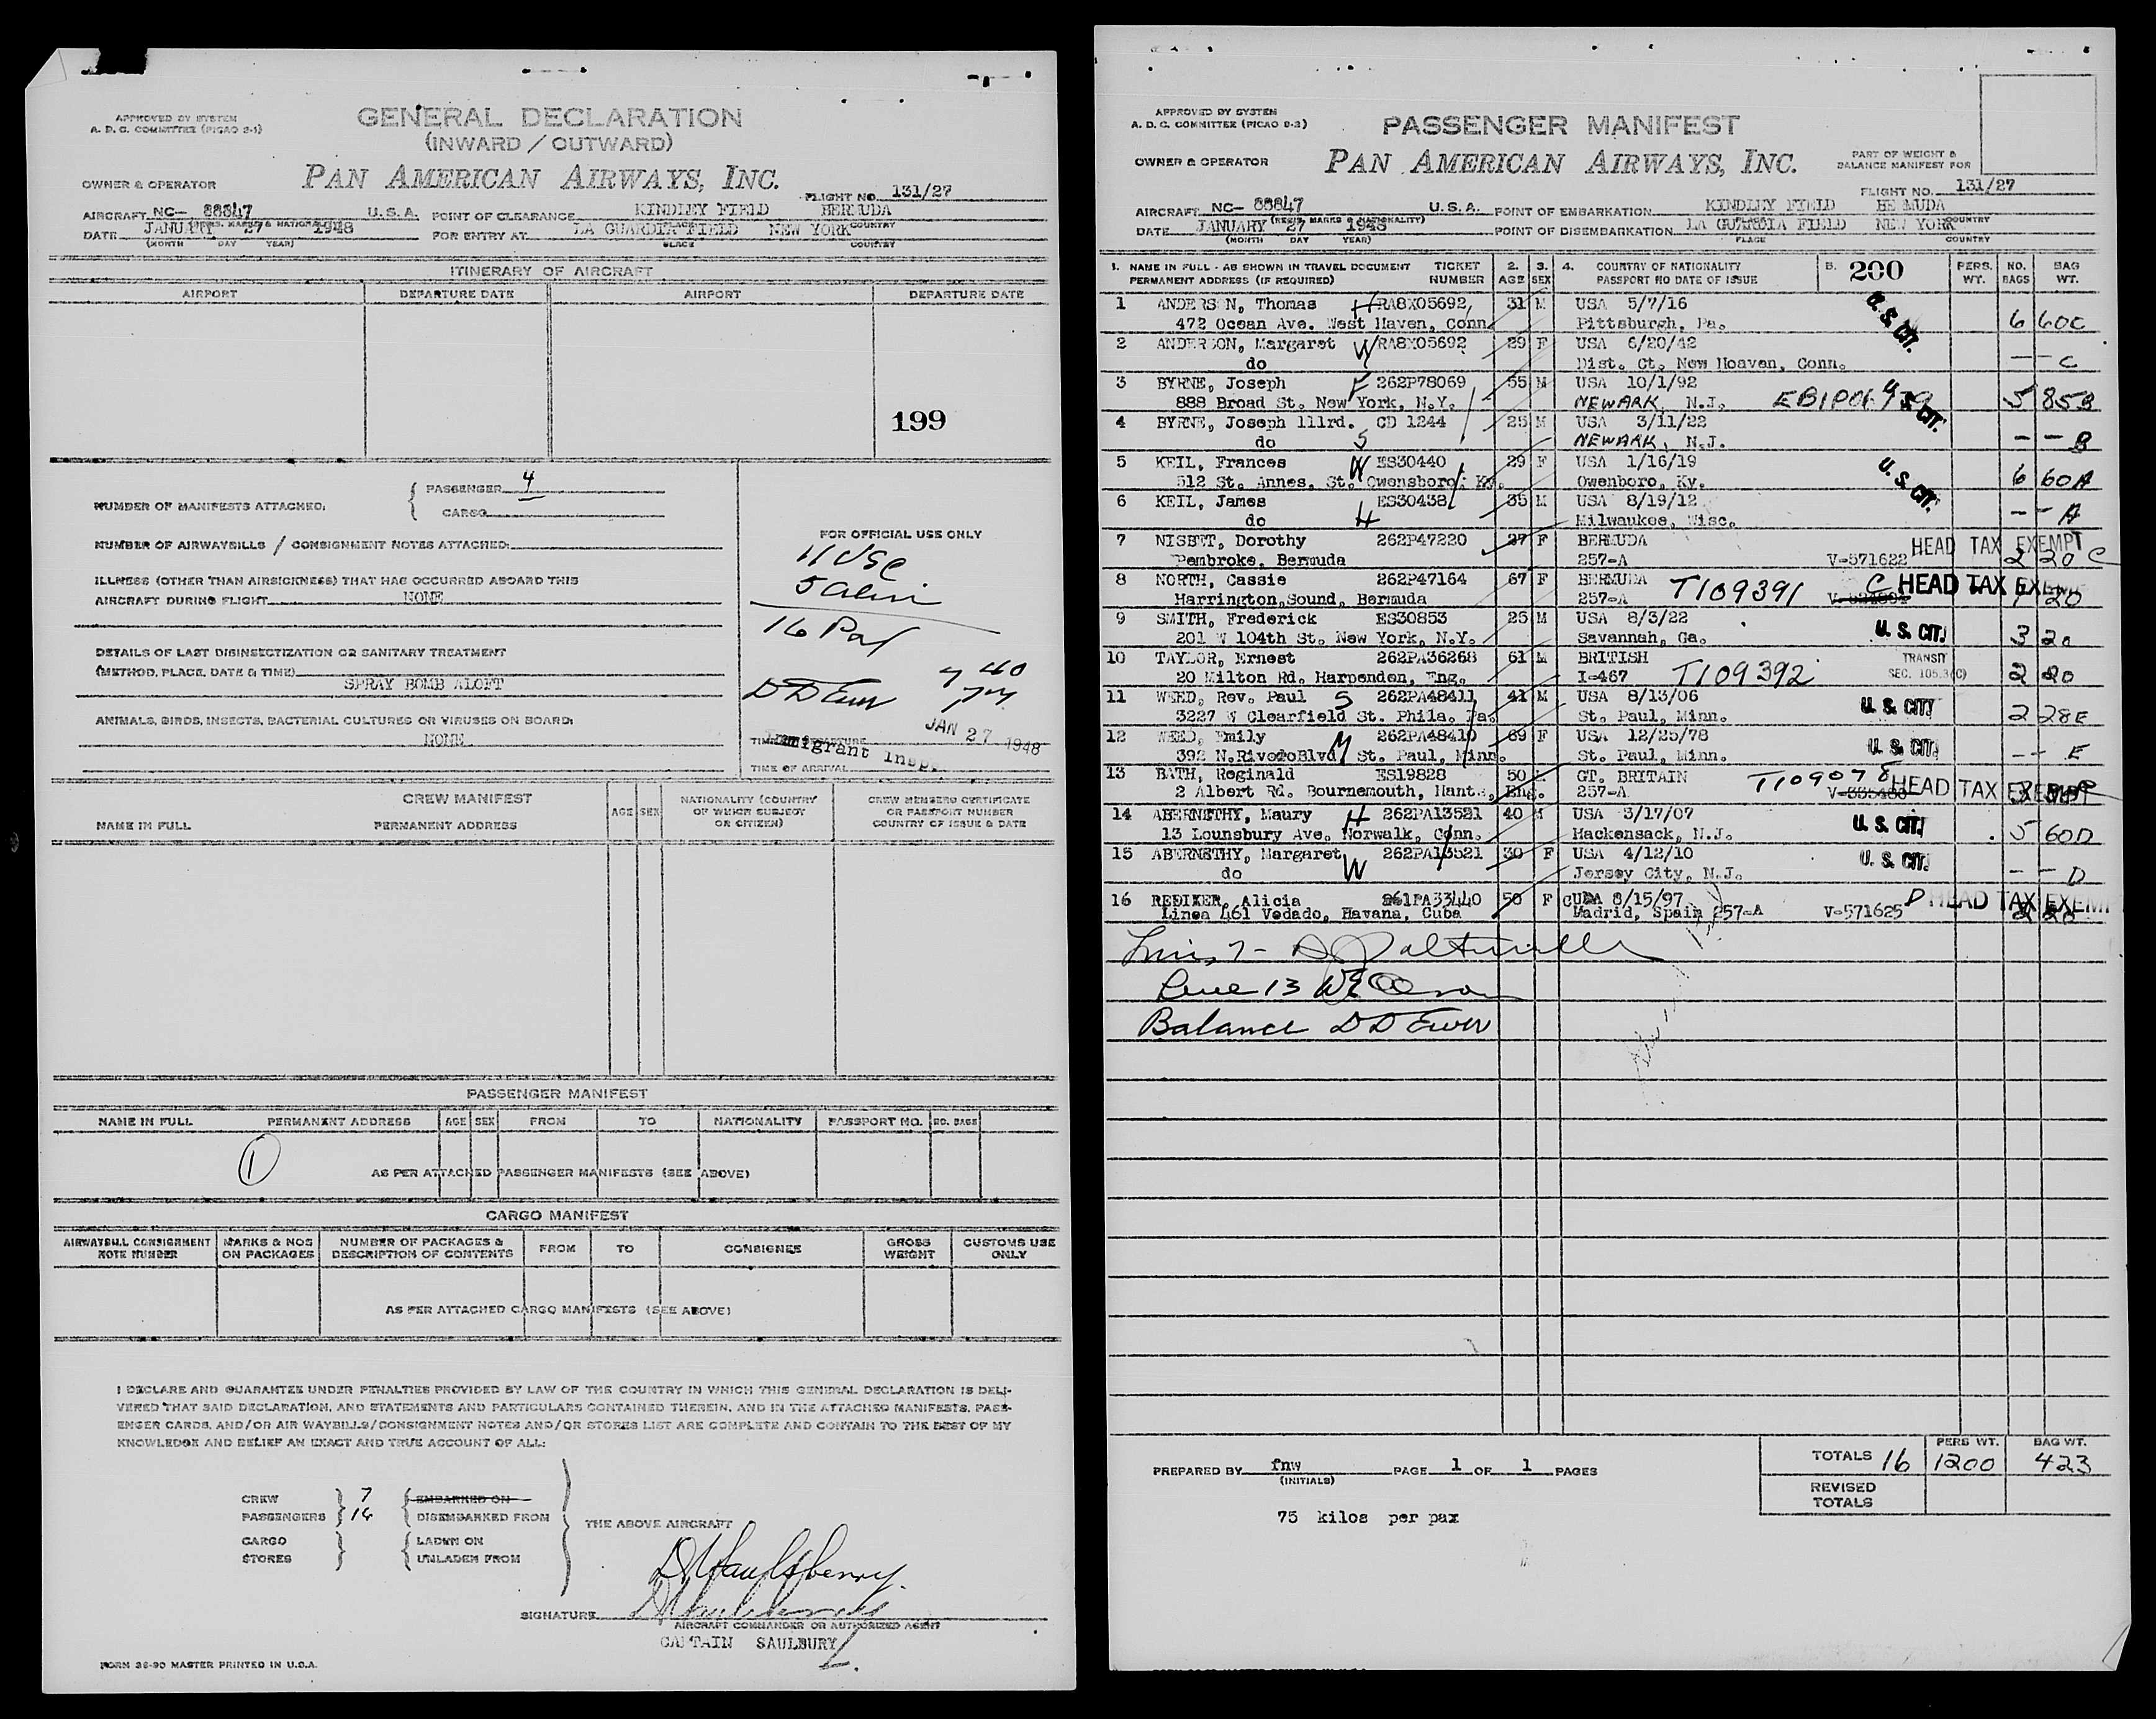 APPROVED BY SYSTEM
A. D. C. COMMITTEE (PICAO 2-1)
GENERAL DECLARATION
(INWARD / OUTWARD)
OWNER & OPERATOR
PAN AMERICAN AIRWAYS, INC.
FLIGHT NO. 131/27
AIRCRAFT NC- 88847 U.S.A. POINT OF CLEARANCE KINDLEY FIELD BERMUDA
DATE JANUARY 27 1948 FOR ENTRY AT LA GUARDIA FIELD NEW YORK COUNTRY
(MONTH DAY YEAR) PLACE COUNTRY
ITINERARY OF AIRCRAFT
AIRPORT DEPARTURE DATE AIRPORT DEPARTURE DATE
199
NUMBER OF MANIFESTS ATTACHED:
PASSENGER 4
CARGO
NUMBER OF AIRWAYBILLS / CONSIGNMENT NOTES ATTACHED:
ILLNESS (OTHER THAN AIRSICKNESS) THAT HAS OCCURRED ABOARD THIS
AIRCRAFT DURING FLIGHT NONE
DETAILS OF LAST DISINSECTIZATION OR SANITARY TREATMENT
(METHOD, PLACE, DATE & TIME)
SPRAY BOMB ALOFT
ANIMALS, BIRDS, INSECTS, BACTERIAL CULTURES OR VIRUSES ON BOARD:
NONE
FOR OFFICIAL USE ONLY
11 USC
5 alien
16 Pas
D D Ewer
JAN 27 1948
Immigrant Insp.
TIME OF ARRIVAL
CREW MANIFEST
NAME IN FULL PERMANENT ADDRESS AGE SEX
NATIONALITY (COUNTRY
OF WHICH SUBJECT
OR CITIZEN)
CREW MEMBERS CERTIFICATE
OR PASSPORT NUMBER
COUNTRY OF ISSUE & DATE
PASSENGER MANIFEST
NAME IN FULL PERMANENT ADDRESS AGE SEX FROM TO NATIONALITY PASSPORT NO. NO. BAGS
1
AS PER ATTACHED PASSENGER MANIFESTS (SEE ABOVE)
CARGO MANIFEST
AIRWAYBILL CONSIGNMENT
NOTE NUMBER
MARKS & NOS
ON PACKAGES
NUMBER OF PACKAGES &
DESCRIPTION OF CONTENTS
FROM TO CONSIGNEE
GROSS
WEIGHT
CUSTOMS USE
ONLY
AS PER ATTACHED CARGO MANIFESTS (SEE ABOVE)
I DECLARE AND GUARANTEE UNDER PENALTIES PROVIDED BY LAW OF THE COUNTRY IN WHICH THIS GENERAL DECLARATION IS DELI-
VERED THAT SAID DECLARATION, AND STATEMENTS AND PARTICULARS CONTAINED THEREIN, AND IN THE ATTACHED MANIFESTS, PASS-
ENGER CARDS, AND/OR AIR WAYBILLS/CONSIGNMENT NOTES AND/OR STORES LIST ARE COMPLETE AND CONTAIN TO THE BEST OF MY
KNOWLEDGE AND BELIEF AN EXACT AND TRUE ACCOUNT OF ALL:
CREW 7 EMBARKED ON
PASSENGERS 16 DISEMBARKED FROM
THE ABOVE AIRCRAFT
CARGO LADEN ON
STORES UNLADEN FROM
SIGNATURE
AIRCRAFT COMMANDER OR AUTHORIZED AGENT
CAPTAIN SAULBURY
FORM 26-90 MASTER PRINTED IN U.S.A.
APPROVED BY SYSTEM
A. D. C. COMMITTEE (PICAO 2-2)
PASSENGER MANIFEST
OWNER & OPERATOR
PAN AMERICAN AIRWAYS, INC.
PART OF WEIGHT &
BALANCE MANIFEST FOR
FLIGHT NO. 131/27
AIRCRAFT NC- 88847 U.S.A. POINT OF EMBARKATION KINDLEY FIELD BERMUDA
(REGIS. MARKS & NATIONALITY) PLACE COUNTRY
DATE JANUARY 27 1948 POINT OF DISEMBARKATION LA GUARDIA FIELD NEW YORK
(MONTH DAY YEAR) PLACE COUNTRY
1. NAME IN FULL - AS SHOWN IN TRAVEL DOCUMENT TICKET 2. 3. 4. COUNTRY OF NATIONALITY 200 PERS. NO. BAG
PERMANENT ADDRESS (IF REQUIRED) NUMBER AGE SEX PASSPORT NO DATE OF ISSUE WT. BAGS WT.
1 ANDERS N, Thomas H RA8X05692, 31 M USA 5/7/16 U. S. CIT.
472 Ocean Ave. West Haven, Conn. Pittsburgh, Pa. 6 60C
2 ANDERSON, Margaret W RA8X05692 29 F USA 6/20/42
do Dist. Ct. New Hoaven, Conn. -- C
3 BYRNE, Joseph F 262P78069 55 M USA 10/1/92 U. S. CIT.
888 Broad St. New York, N.Y. NEWARK, N.J. 5 85B
4 BYRNE, Joseph 111rd. CD 1244 25 M USA 3/11/22
do S NEWARK, N.J. -- B
5 KEIL, Frances W ES30440 29 F USA 1/16/19 U. S. CIT.
512 St. Annes, St. Owensboro, Ky. Owenboro, Ky. 6 60A
6 KEIL, James ES30438 35 M USA 8/19/12
do H Milwaukee, Wisc. -- A
7 NISBET, Dorothy 262P47220 27 F BERMUDA HEAD TAX EXEMPT
Pembroke, Bermuda 257-A V-571622 2 20 C
8 NORTH, Cassie 262P47164 67 F BERMUDA T109391 C HEAD TAX EXEMPT
Harrington, Sound, Bermuda 257-A 1 20
9 SMITH, Frederick ES30853 25 M USA 8/3/22 U. S. CIT.
201 W 104th St. New York, N.Y. Savannah, Ga. 3 20
10 TAYLOR, Ernest 262PA36268 61 M BRITISH T109392 TRANSIT
20 Milton Rd. Harpenden, Eng. I-467 SEC. 105.3(C) 2 20
11 WEED, Rev. Paul S 262PA48411 41 M USA 8/13/06 U. S. CIT.
3227 W Clearfield St. Phila. Pa. St. Paul, Minn. 2 28E
12 WEED, Emily M 262PA48410 69 F USA 12/25/78 U. S. CIT.
392 N.RivodoBlvd St. Paul, Minn. St. Paul, Minn. -- E
13 BATH, Reginald ES19828 50 GT. BRITAIN T109078 HEAD TAX EXEMPT
2 Albert Rd. Bournemouth, Hant., Eng. 257-A
14 ABERNETHY, Maury H 262PA13521 40 M USA 3/17/07 U. S. CIT.
13 Lounsbury Ave. Norwalk, Conn. Hackensack, N.J. 5 60D
15 ABERNETHY, Margaret W 262PA13521 30 F USA 4/12/10 U. S. CIT.
do Jersey City, N.J. -- D
16 REDIKER, Alicia 261PA33440 50 F CUBA 8/15/97 P HEAD TAX EXEM
Linea 461 Vedado, Havana, Cuba Madrid, Spain 257-A V-571625 2 20
Line 13
Balance D D Ewer
PREPARED BY fnw PAGE 1 OF 1 PAGES
(INITIALS)
75 kilos per pax
PERS WT. BAG WT.
TOTALS 16 1200 423
REVISED
TOTALS